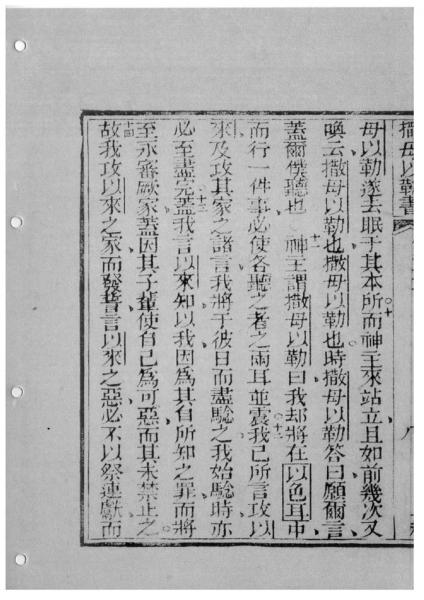 撒母以勒書
母以勒遂去眠于其本所而神主來站立且如前幾次又
十
喚云撒母以勒也撒母以勒也時撒母以勒答曰願爾言
蓋爾僕聽也
十一
神主謂撒母以勒曰我却將在以色耳中
而行一件事必使各聽之者之兩耳並震
十二
我已所言攻以
來及攻其家之諸言我將于彼日而盡驗之我始驗時亦
必至盡完
十三
蓋我言以來知以我因為其自所知之罪而將
至永審厥家蓋因其子輩使自己為可惡而其未禁止之
十四
故我攻以來之家而發誓言以來之惡必不以祭連獻而